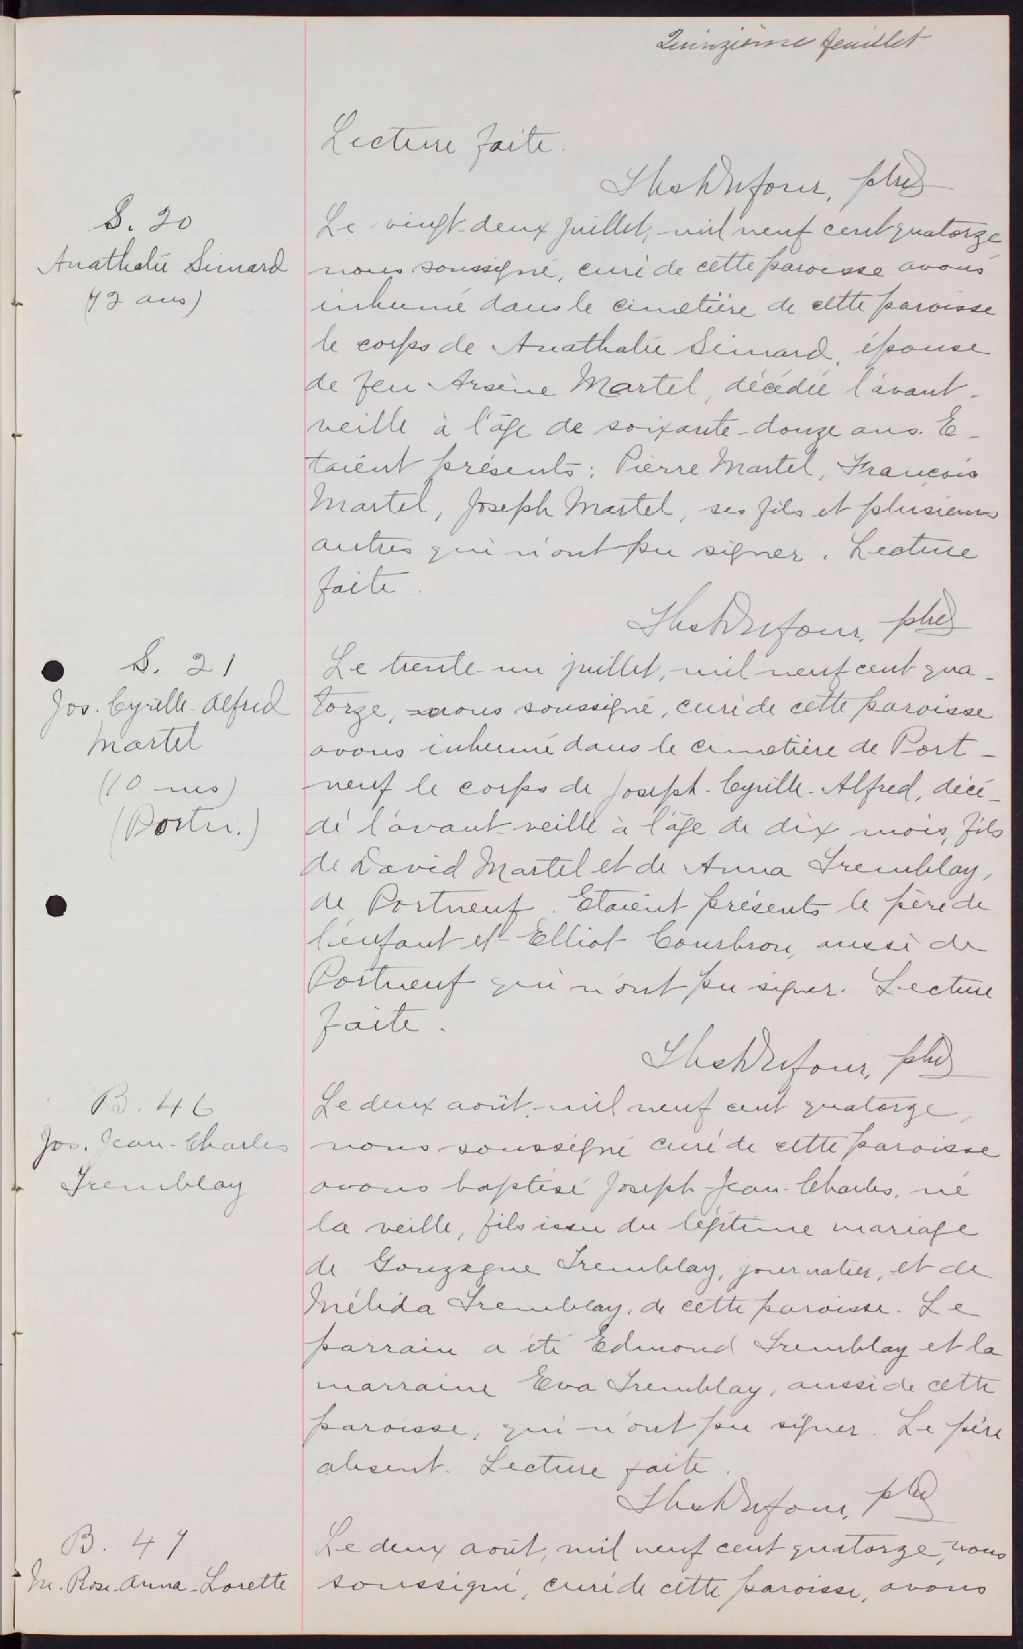 Quinzième feuillet
Lecture faite.
Ths Dufour, ptre
S. 20
Anathalie Simard
(72 ans)
Le vingt-deux juillet, mil neuf cent quatorze
nous soussigné, curé de cette paroisse avons
inhumé dans le cimetière de cette paroisse
le corps de Anathalie Simard, épouse
de feu Arsène Martel, décédée l'avant-
veille à l'âge de soixante-douze ans. E-
taient présents: Pierre Martel, François
Martel, Joseph Martel, ses fils et plusieurs
autres qui n'ont pu signer. Lecture
faite.
Ths Dufour, ptre
S. 21
Jos. Cyrille-Alfred
Martel
(10 ms)
(Portn.)
Le trente-un juillet, mil neuf cent qua-
torze, nous soussigné, curé de cette paroisse
avons inhumé dans le cimetière de Port-
neuf le corps de Joseph-Cyrille-Alfred, décé-
dé l'avant-veille à l'âge de dix mois, fils
de David Martel et de Anna Tremblay,
de Portneuf. Etaient présents le père de
l'enfant et Elliot Courbron, aussi de
Portneuf qui n'ont pu signer. Lecture
faite.
Ths Dufour, ptre
B. 46
Jos. Jean-Charles
Tremblay
Le deux août, mil neuf cent quatorze,
nous soussigné curé de cette paroisse
avons baptisé Joseph-Jean-Charles, né
la veille, fils issu du légitime mariage
de Gonzague Tremblay, journalier, et de
Mélida Tremblay, de cette paroisse. Le
parrain a été Edmond Tremblay et la
marraine Eva Tremblay, aussi de cette
paroisse, qui n'ont pu signer. Le père
absent. Lecture faite.
Ths Dufour, ptre
B. 47
M. Rose-Anna-Lorette
Le deux août, mil neuf cent quatorze, nous
soussigné, curé de cette paroisse, avons